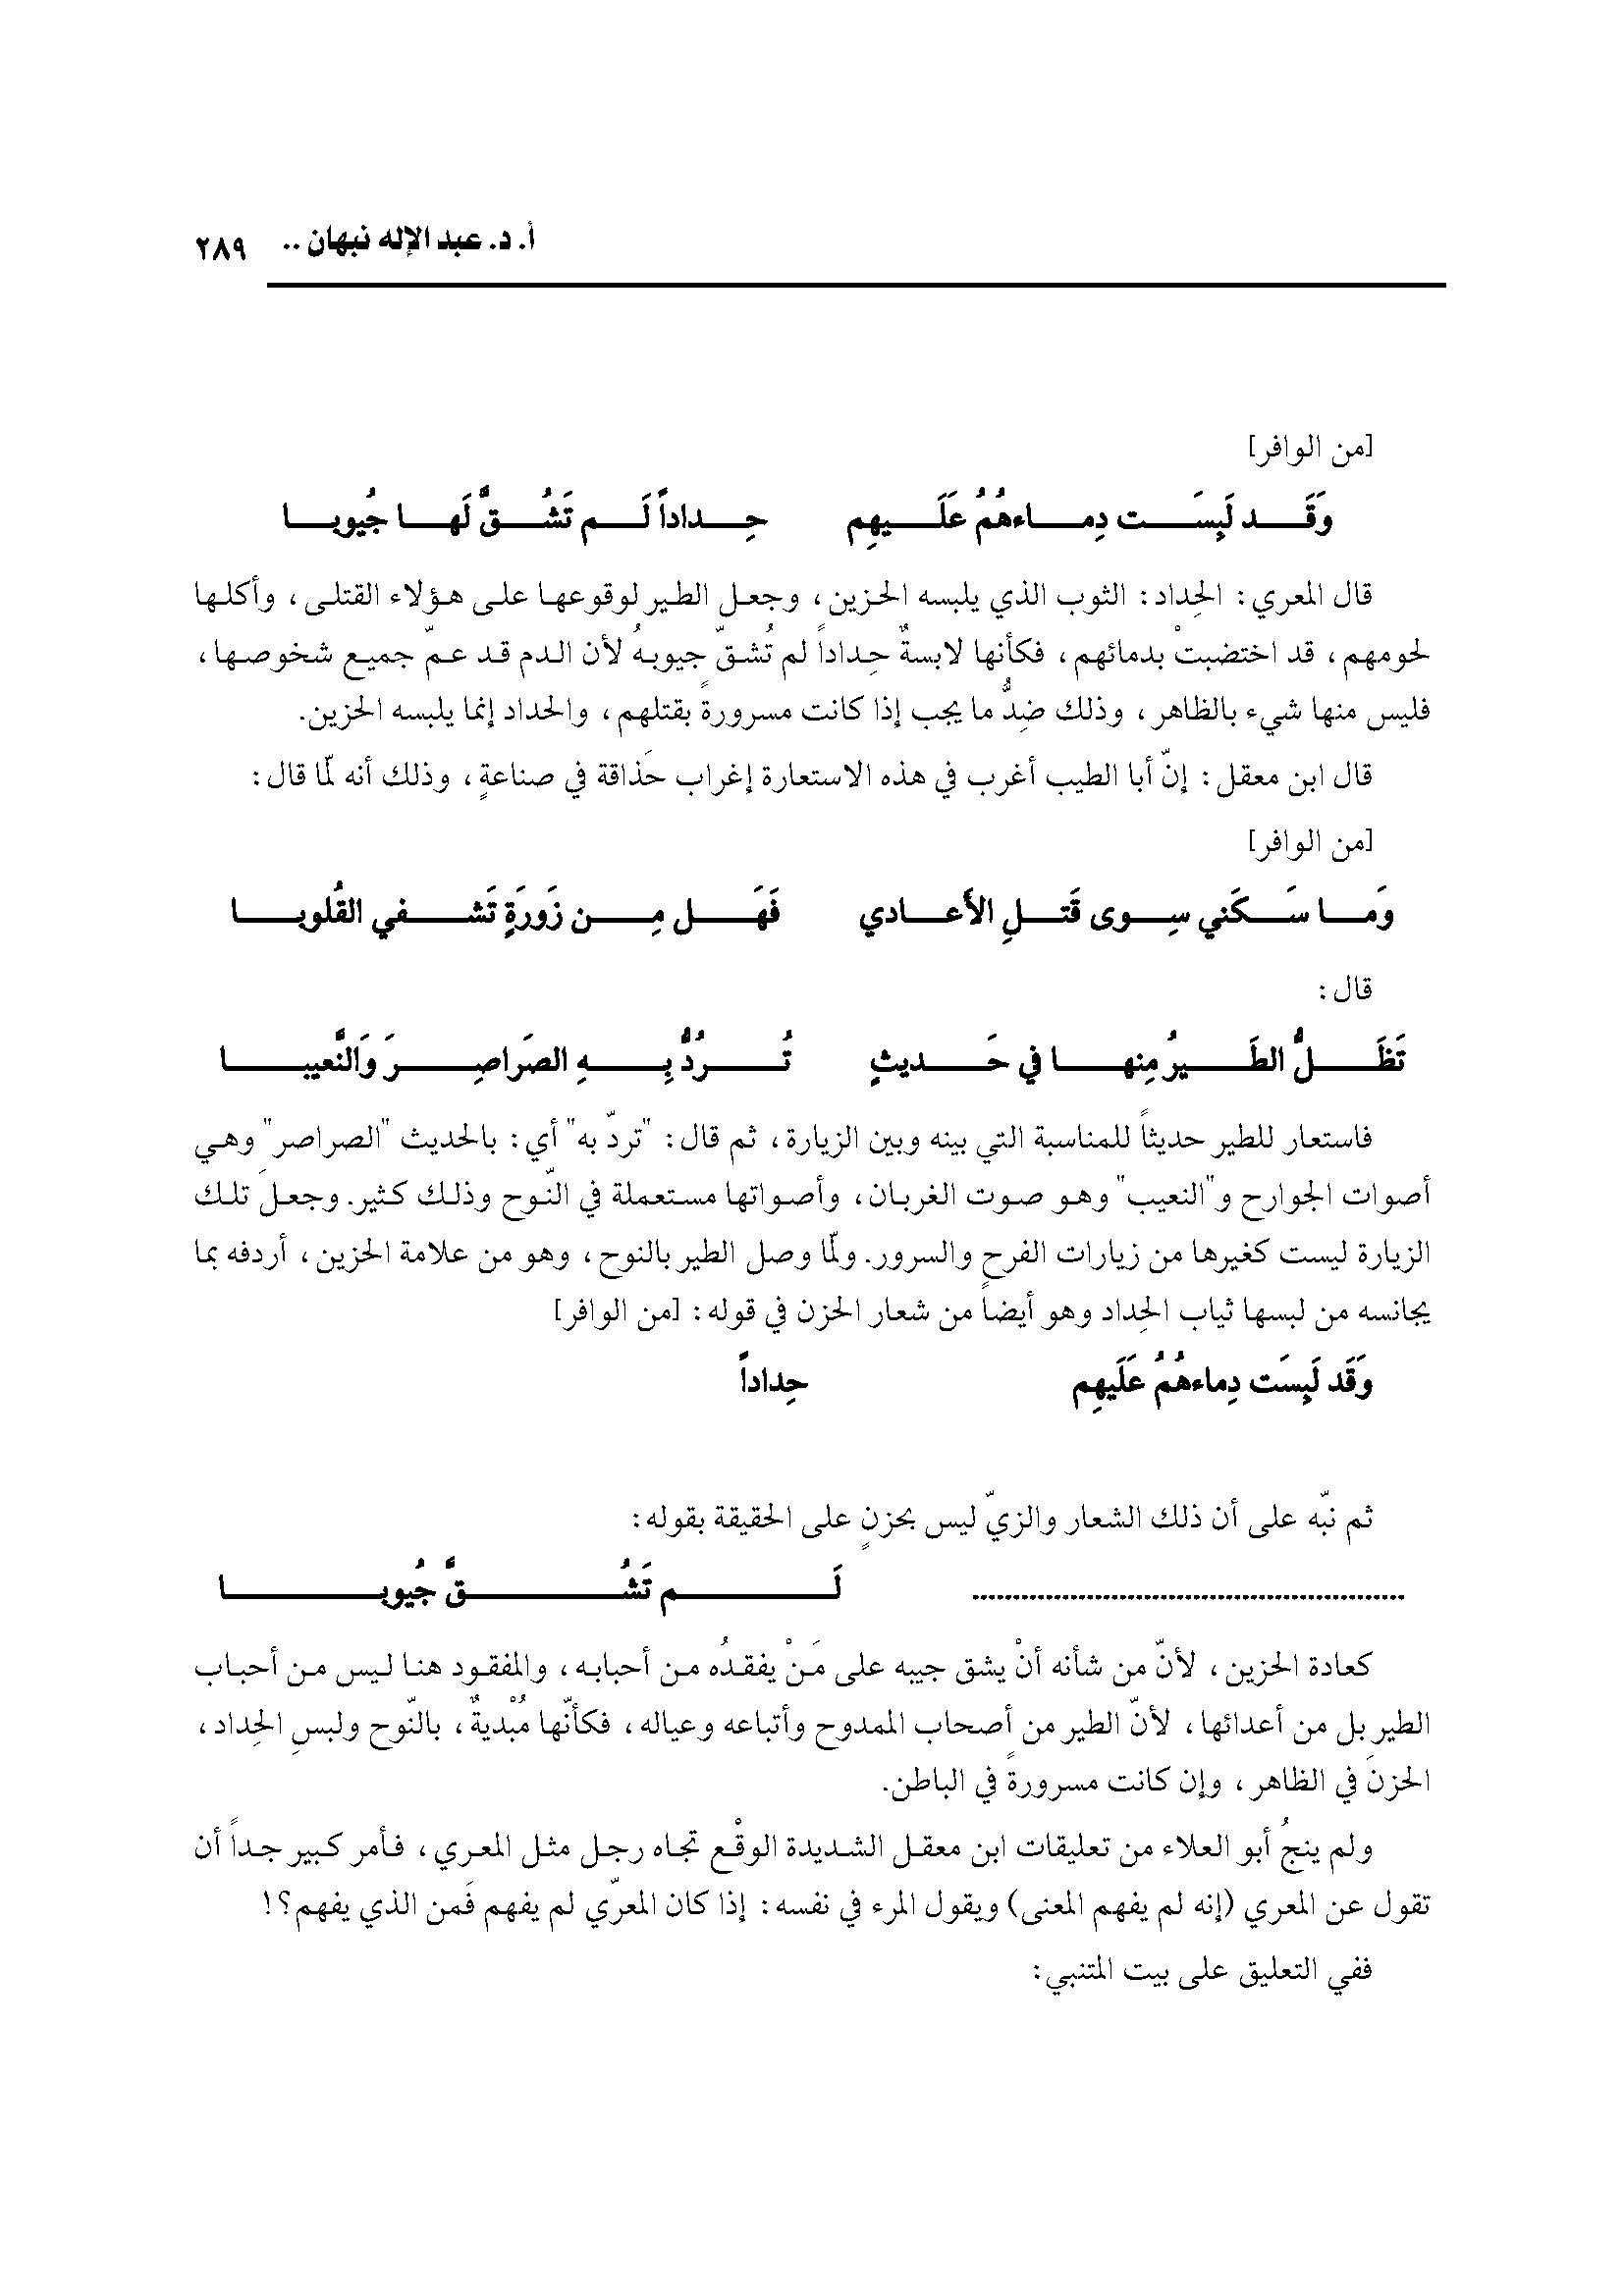 أ. د. عبد الإله نبهان .. ٢٨٩
[من الوافر]
وَقَد لَبِسَت دِماءهُمُ عَلَيهِم حِداداً لَم تَشُقَّ لَها جُيوبا
قال المعري: الحِداد: الثوب الذي يلبسه الحزين، وجعل الطير لوقوعها على هؤلاء القتلى، وأكلها
لحومهم، قد اختضبتْ بدمائهم، فكأنها لابسةٌ حِداداً لم تُشقّ جيوبهُ لأن الدم قد عمّ جميع شخوصها،
فليس منها شيء بالظاهر، وذلك ضِدُّ ما يجب إذا كانت مسرورةً بقتلهم، والحداد إنما يلبسه الحزين.
قال ابن معقل: إنّ أبا الطيب أغرب في هذه الاستعارة إغراب حَذاقة في صناعةٍ، وذلك أنه لمّا قال:
[من الوافر]
وَما سَكَني سِوى قَتلِ الأَعادي فَهَل مِن زَورَةٍ تَشفي القُلوبا
قال:
تَظَلُّ الطَيرُ مِنها في حَديثٍ تُرَدُّ بِهِ الصَراصِرَ وَالنَّعيبا
فاستعار للطير حديثاً للمناسبة التي بينه وبين الزيارة، ثم قال: "تردّ به" أي: بالحديث "الصراصر" وهي
أصوات الجوارح و"النعيب" وهو صوت الغربان، وأصواتها مستعملة في النّوح وذلك كثير. وجعلَ تلك
الزيارة ليست كغيرها من زيارات الفرح والسرور. ولمّا وصل الطير بالنوح، وهو من علامة الحزين، أردفه بما
يجانسه من لبسها ثياب الحِداد وهو أيضاً من شعار الحزن في قوله: [من الوافر]
وَقَد لَبِسَت دِماءهُمُ عَلَيهِم حِداداً
ثم نبّه على أن ذلك الشعار والزيّ ليس بحزنٍ على الحقيقة بقوله:
................................................ لَم تَشُقَّ جُيوبا
كعادة الحزين، لأنّ من شأنه أنْ يشق جيبه على مَنْ يفقدُه من أحبابه، والمفقود هنا ليس من أحباب
الطير بل من أعدائها، لأنّ الطير من أصحاب الممدوح وأتباعه وعياله، فكأنّها مُبْديةٌ، بالنّوح ولبسِ الحِداد،
الحزنَ في الظاهر، وإن كانت مسرورةً في الباطن.
ولم ينجُ أبو العلاء من تعليقات ابن معقل الشديدة الوقْع تجاه رجل مثل المعري، فأمر كبير جداً أن
تقول عن المعري (إنه لم يفهم المعنى) ويقول المرء في نفسه: إذا كان المعرّي لم يفهم فَمن الذي يفهم؟!
ففي التعليق على بيت المتنبي: